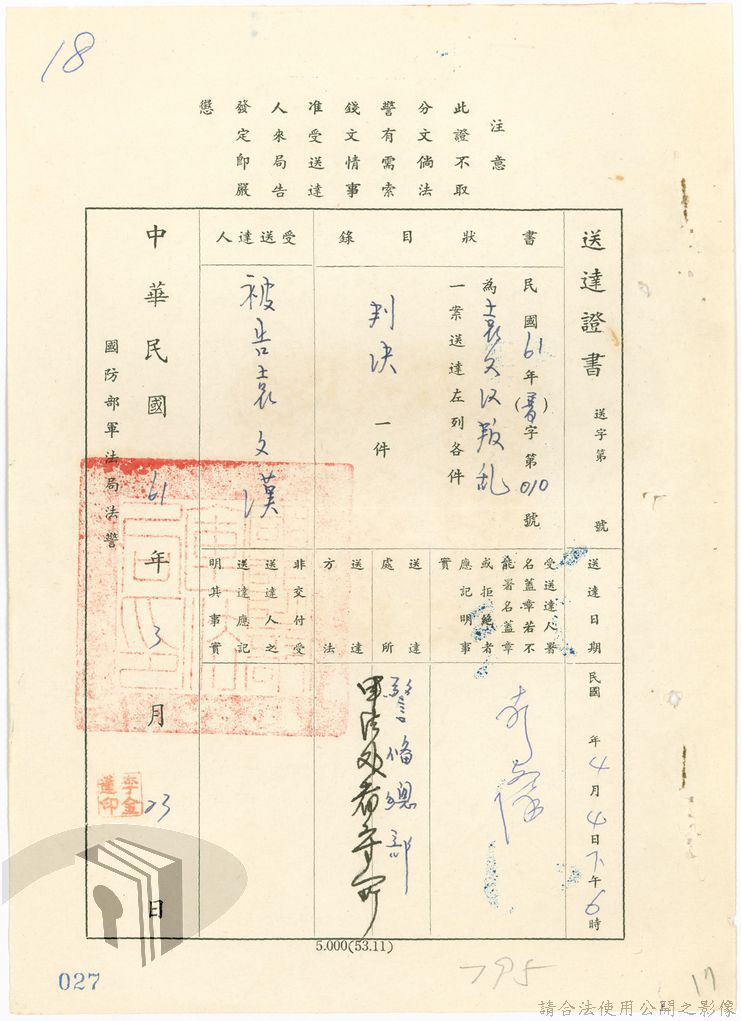 18
注意
此證不取
分文倘法
警有需索
錢文情事
准受送達
人來局告
發定卽嚴
懲
送達證書 送字第 號
書狀目錄
民國61年(普)字第010號
為袁文汉叛乱
一案送達左列各件
判决 一件
受送達人
被告袁文漢
送達日期
民國 年4月4日下午6時
受送達人署
名蓋章若不
能署名蓋章
或拒絕者
應記明事
實
送達處所
警俻總部
軍法处看守所
送達方法
非交付受
送達人之
送達應記
明其事實
中華民國61年3月23日
國防部軍法局法警
李金蓮印
5.000(53.11)
027
795
17
請合法使用公開之影像